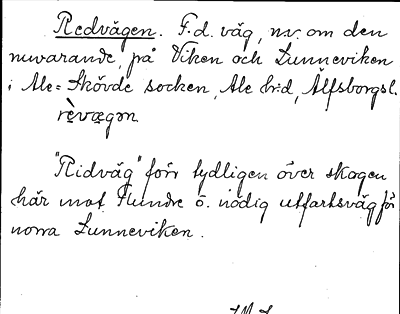 Redvägen. F.d. väg, nv. om den
nuvarande, på Viken och Lunneviken
i Ale-Skövde socken, Ale hd, Älfsborgs l.
rèvægən
"Ridväg" förr tydligen över skogen
här mot Flundre o. nödig utfartsväg för
norra Lunneviken.